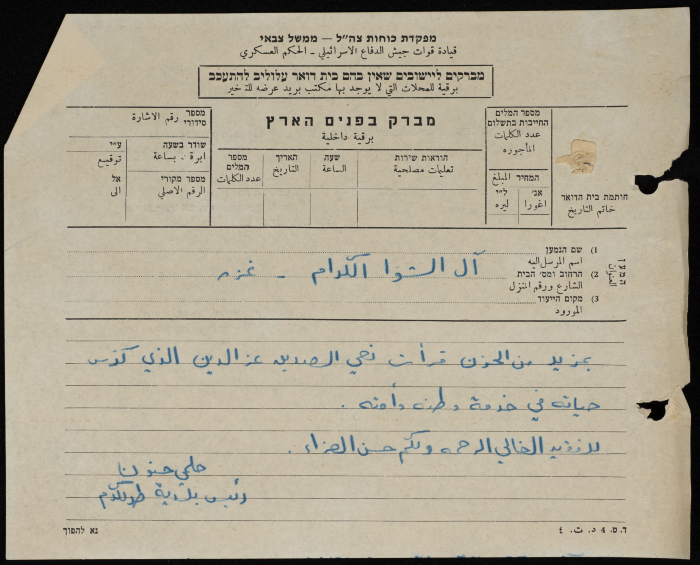 מפקדת כוחות צה"ל — ממשל צבאי
قيادة قوات جيش الدفاع الاسرائيلي - الحكم العسكري
מברקים ליישובים שאין בהם בית דואר עלולים להתעכב
برقية للمحلات التي لا يوجد بها مكتب بريد عرضة للتأخير
מברק בפנים הארץ
برقية داخلية
מספר המלים
החייבות בתשלום
عدد الكلمات
المأجوره
המחיר المبلغ
אג' ל"י
اغورا ليره
הוראות שירות שעה תאריך מספר המלים
تعليمات مصلحية الساعة التاريخ عدد الكلمات
מספר סידורי رقم الاشارة
שודר בשעה ע"י
ابرق بساعة توقيع
מספר מקורי אל
الرقم الاصلي الى
חותמת בית הדואר
خاتم التاريخ
הנמען
العنوان
1) שם הנמען
اسم المرسل اليه
2) הרחוב ומס' הבית
الشارع ورقم المنزل
3) מקום הייעוד
المورود
آل الشوا الكرام - غزه
بمزيد من الحزن قرأت نعي الصديق عز الدين الذي كرّس
حياته في خدمة وطنه وأمته .
للفقيد الغالي الرحمه ولكم حسن العزاء .
حلمي حنون
رئيس بلدية طولكرم
ד.מ. 4 د.ت. ٤
נא להפוך